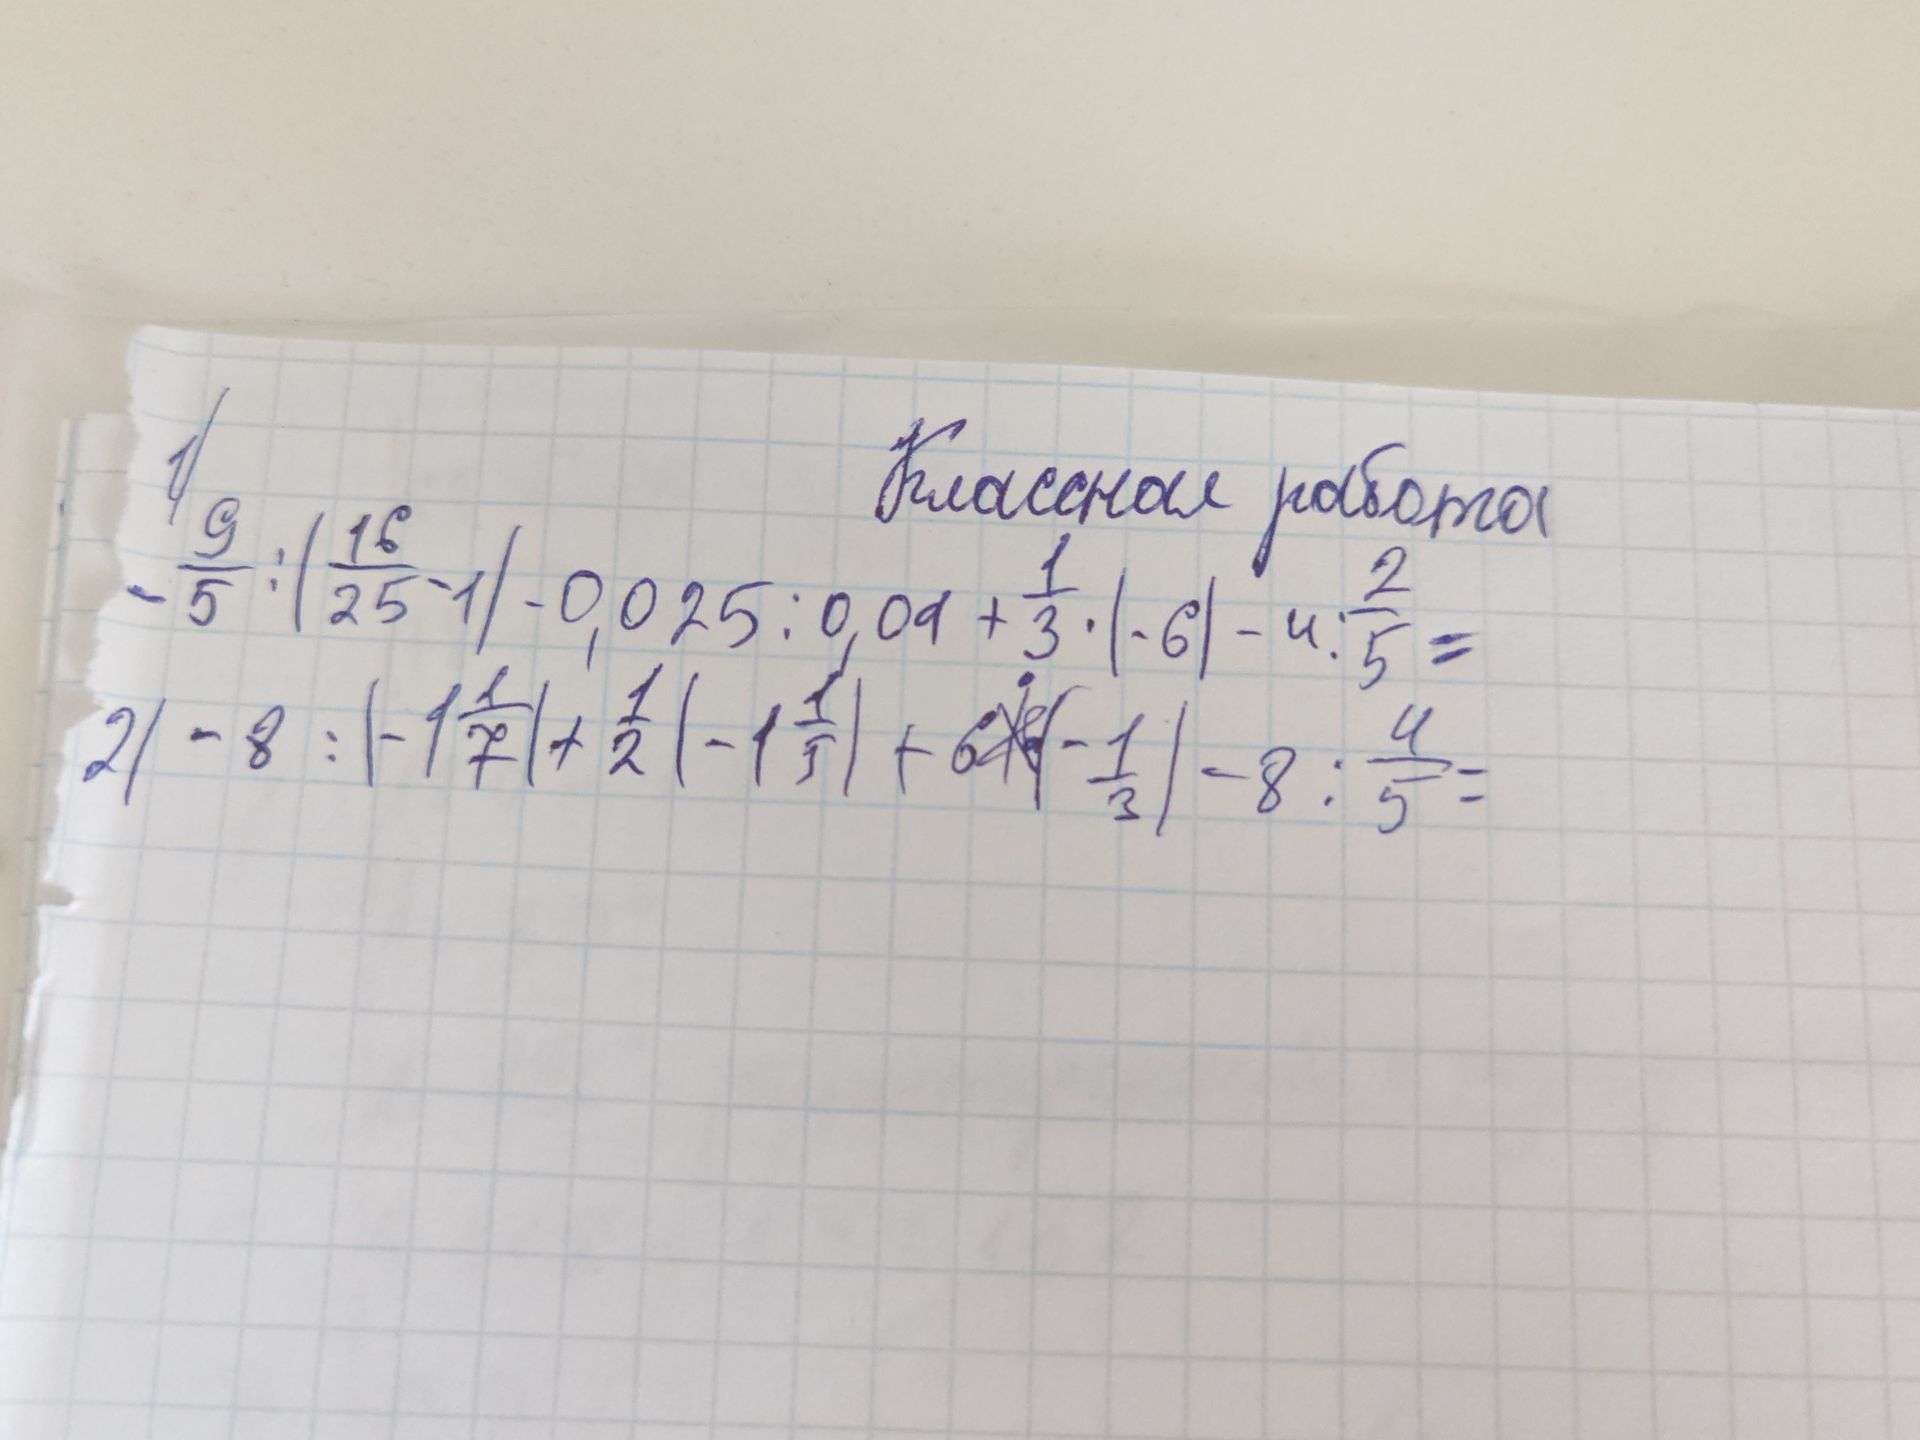 1)
Классная работа
- 9/5 : (16/25 - 1) - 0,025 : 0,01 + 1/3 · (-6) - 4 : 2/5 =
2) - 8 : (-1 1/7) + 1/2 (-1 1/5) + 6 · (-1/3) - 8 : 4/5 =